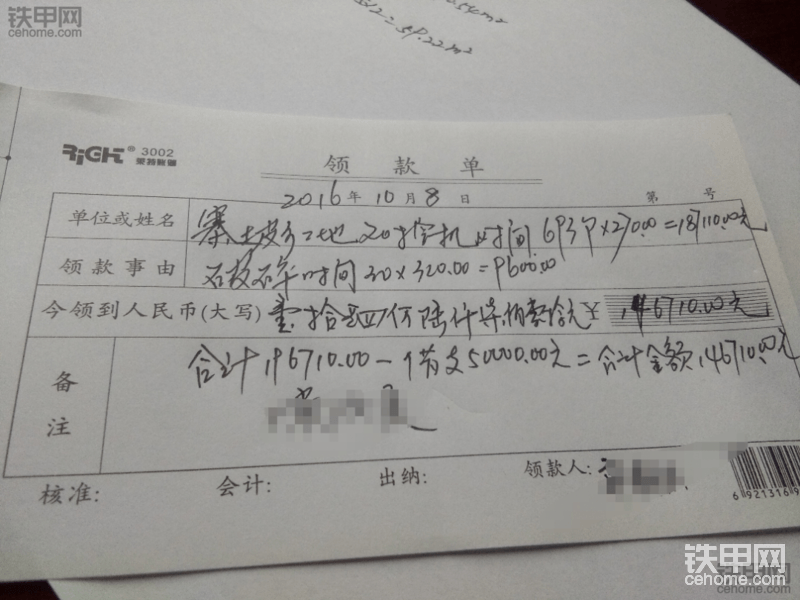 铁甲网
cehome.com
59.22m²
RIGHT® 3002
莱特账簿
领款单
2016年10月8日 第 号
单位或姓名 寨土坡 工地20挖机时间693个×270.00=187110.00元
领款事由 石破碎时间30×320.00=9600.00
今领到人民币(大写) 壹拾 四仟陆仟柒佰壹拾元 ¥146710.00元
备注 合计196710.00-借支50000.00元=合计金额146710.00元
核准: 会计: 出纳: 领款人:
6 921316 9
铁甲网
cehome.com